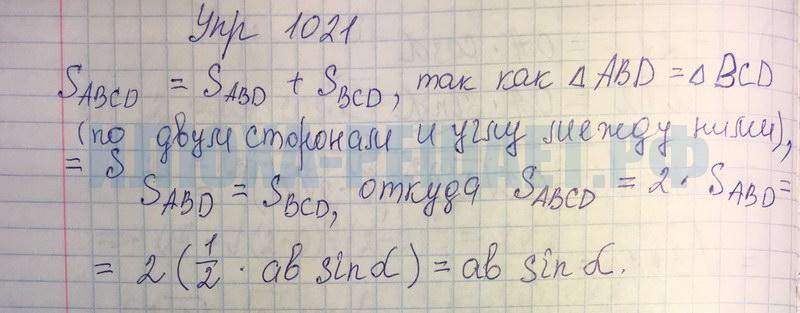 Упр 1021
S_ABCD = S_ABD + S_BCD, так как △ ABD = △ BCD
(по двум сторонам и углу между ними),
= S
S_ABD = S_BCD, откуда S_ABCD = 2 · S_ABD =
= 2 (1/2 · ab sin α) = ab sin α.